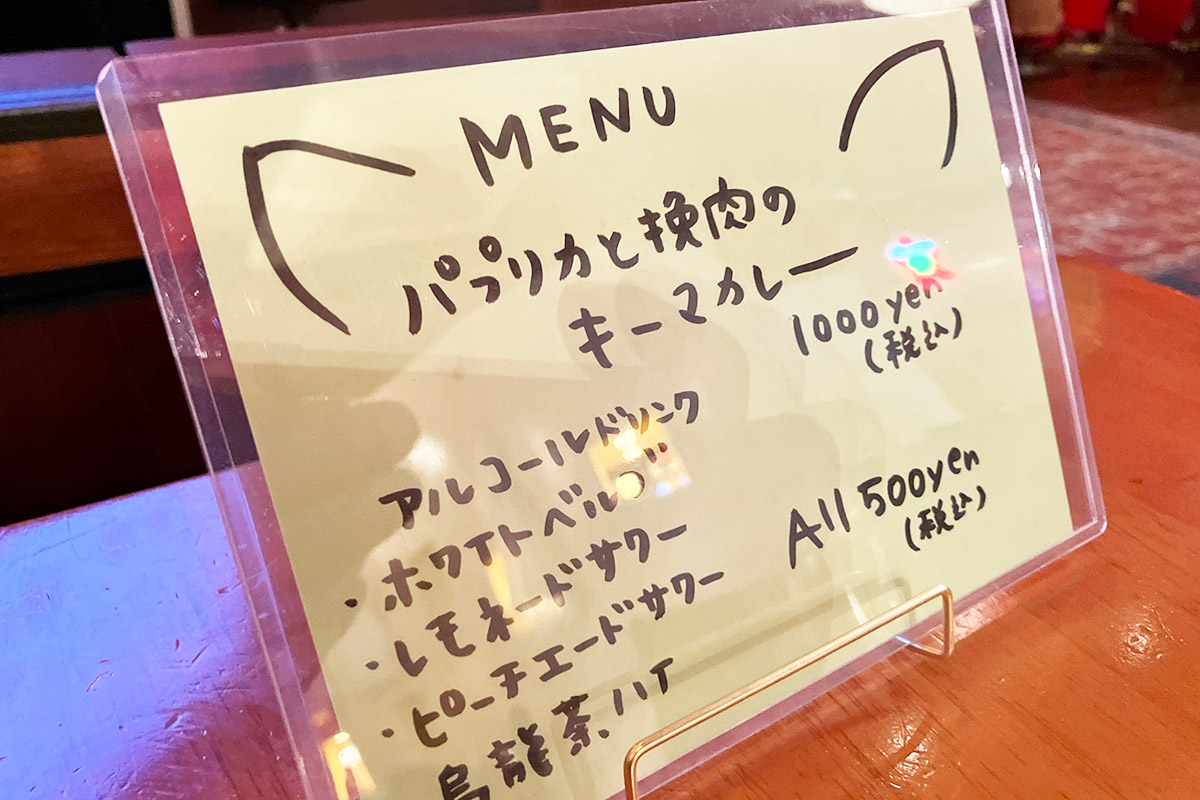 MENU
パプリカと挽肉の
キーマカレー
1000yen
(税込)
アルコールドリンク
・ホワイトベルグ
・レモネードサワー
・ピーチエードサワー
烏龍茶ハイ
All 500yen
(税込)